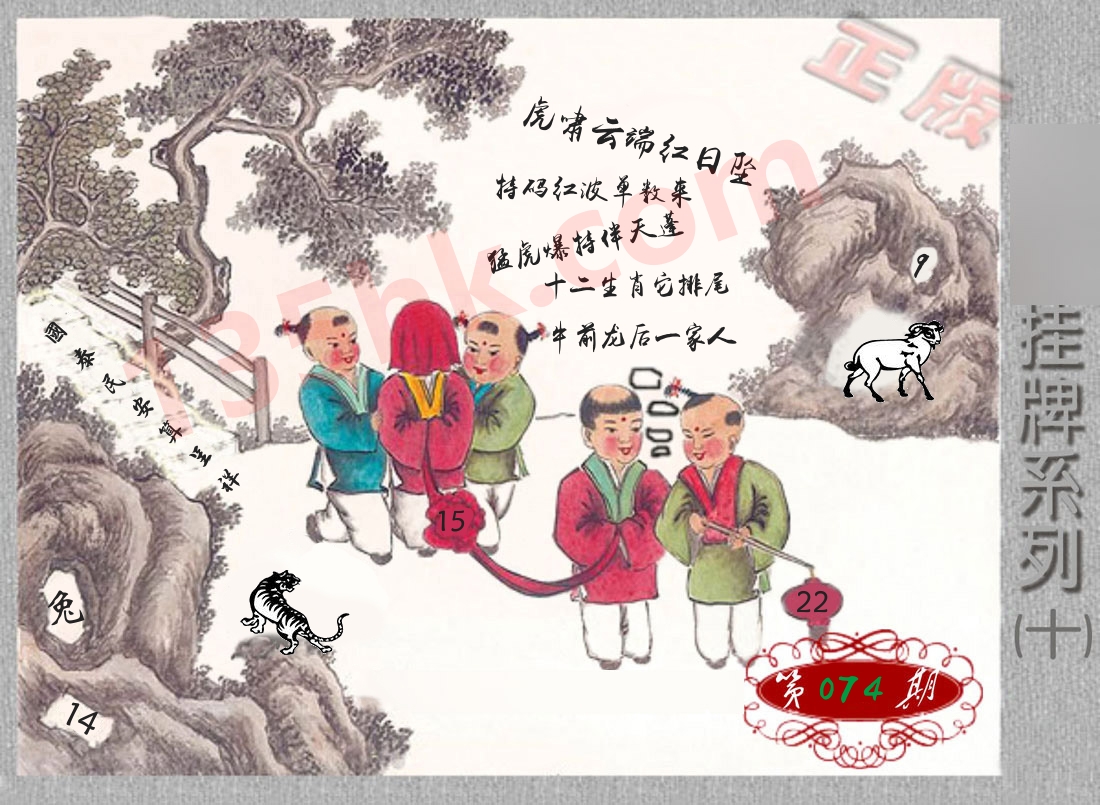 正版
虎啸云端红日坠
特码红波单数来
猛虎爆特伴天蓬
十二生肖它排尾
牛前龙后一家人
9
國泰民安算呈祥
挂牌系列(十)
15
22
兔
14
第074期
135hk.com